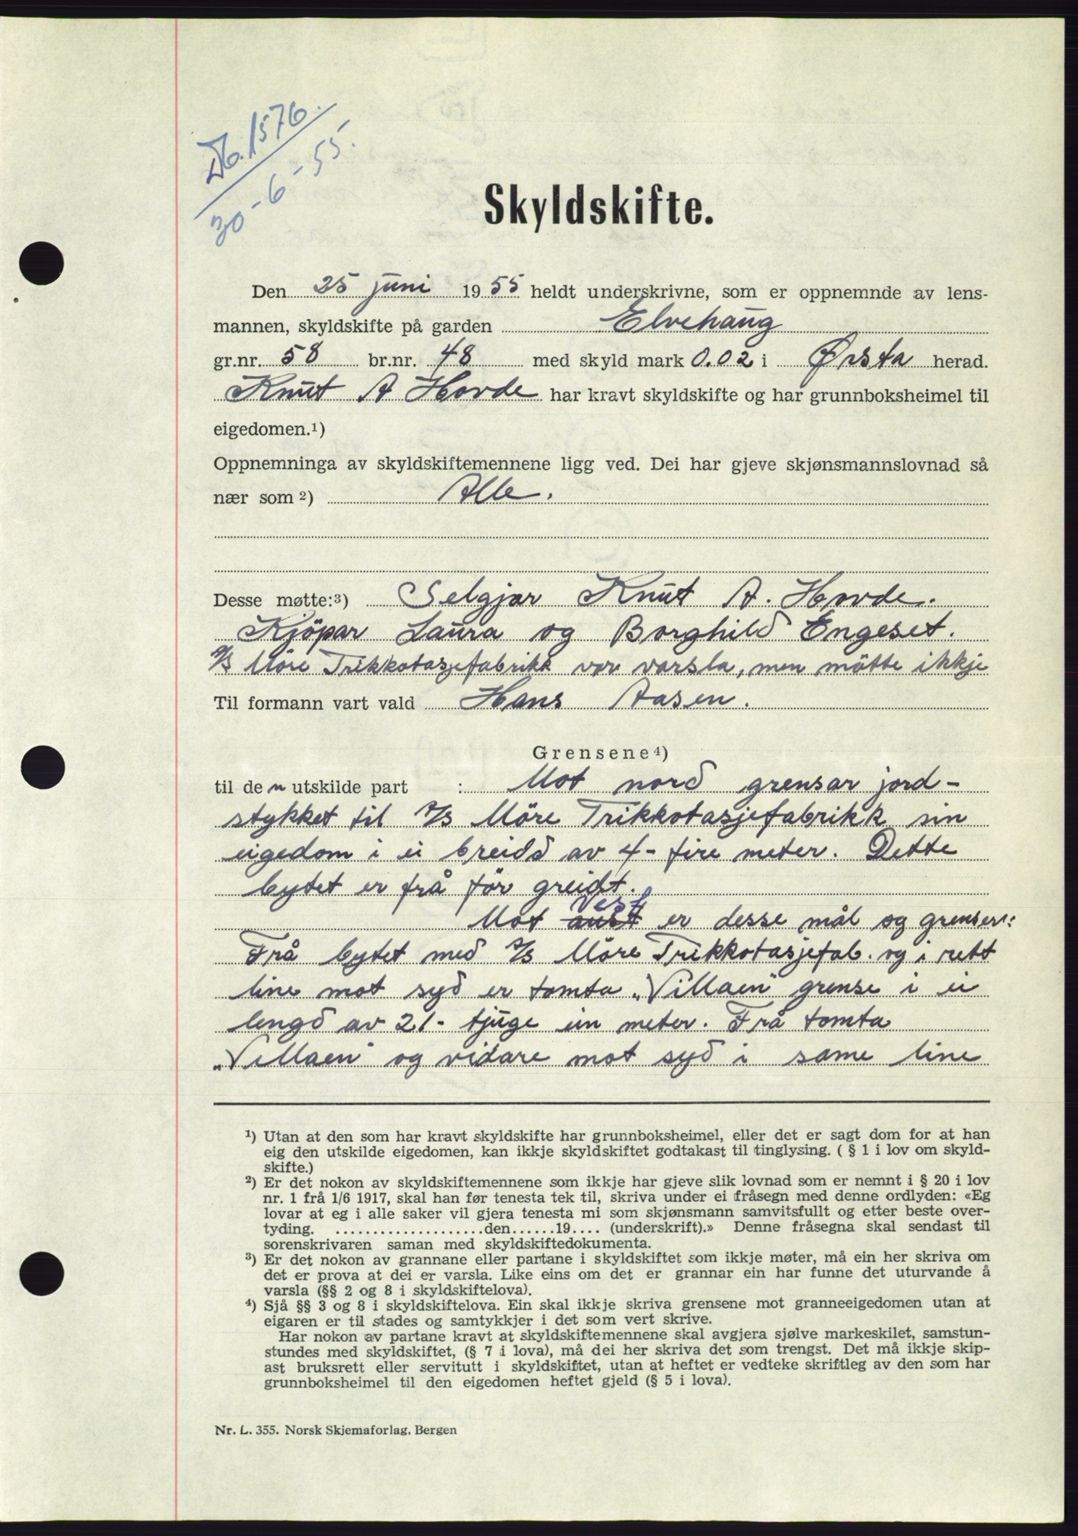 Db. 1576.
30-6-55.
Skyldskifte.
Den 25 juni 1955 heldt underskrivne, som er oppnemnde av lens-
mannen, skyldskifte på garden Elvehaug
gr.nr. 58 br.nr. 48 med skyld mark 0.02 i Ørsta herad.
Knut A Hovde har kravt skyldskifte og har grunnboksheimel til
eigedomen.¹)
Oppnemninga av skyldskiftemennene ligg ved. Dei har gjeve skjønsmannslovnad så
nær som ²) Alle.
Desse møtte:³) Selgjar Knut A. Hovde.
Kjöpar Laura og Borghild Engeset.
A/S Möre Trikkotasjefabrikk var varsla, men mötte ikkje
Til formann vart vald Hans Aasen.
Grensene⁴)
til den utskilde part : Mot nord grensar jord-
stykket til A/S Möre Trikkotasjefabrikk sin
eigedom i ei breidd av 4- fire meter. Dette
bytet er frå för greidt.
Vest
Mot aust er desse mål og grenser:
Frå bytet med A/S Möre Trikkotasjefab. og i rett
line mot syd er tomta „Villaen" grense i ei
lengd av 21- tjuge ein meter. Frå tomta
„Villaen" og vidare mot syd i same line
¹) Utan at den som har kravt skyldskifte har grunnboksheimel, eller det er sagt dom for at han
eig den utskilde eigedomen, kan ikkje skyldskiftet godtakast til tinglysing. ( § 1 i lov om skyld-
skifte.)
²) Er det nokon av skyldskiftemennene som ikkje har gjeve slik lovnad som er nemnt i § 20 i lov
nr. 1 frå 1/6 1917, skal han før tenesta tek til, skriva under ei fråsegn med denne ordlyden: «Eg
lovar at eg i alle saker vil gjera tenesta mi som skjønsmann samvitsfullt og etter beste over-
tyding. ....................den......19.... (underskrift).» Denne fråsegna skal sendast til
sorenskrivaren saman med skyldskiftedokumenta.
³) Er det nokon av grannane eller partane i skyldskiftet som ikkje møter, må ein her skriva om
det er prova at dei er varsla. Like eins om det er grannar ein har funne det uturvande å
varsla (§§ 2 og 8 i skyldskiftelova).
⁴) Sjå §§ 3 og 8 i skyldskiftelova. Ein skal ikkje skriva grensene mot granneeigedomen utan at
eigaren er til stades og samtykkjer i det som vert skrive.
Har nokon av partane kravt at skyldskiftemennene skal avgjera sjølve markeskilet, samstun-
stundes med skyldskiftet, (§ 7 i lova), må dei her skriva det som trengst. Det må ikkje skip-
ast bruksrett eller servitutt i skyldskiftet, utan at heftet er vedteke skriftleg av den som har
grunnboksheimel til den eigedomen heftet gjeld (§ 5 i lova).
Nr. L. 355. Norsk Skjemaforlag, Bergen